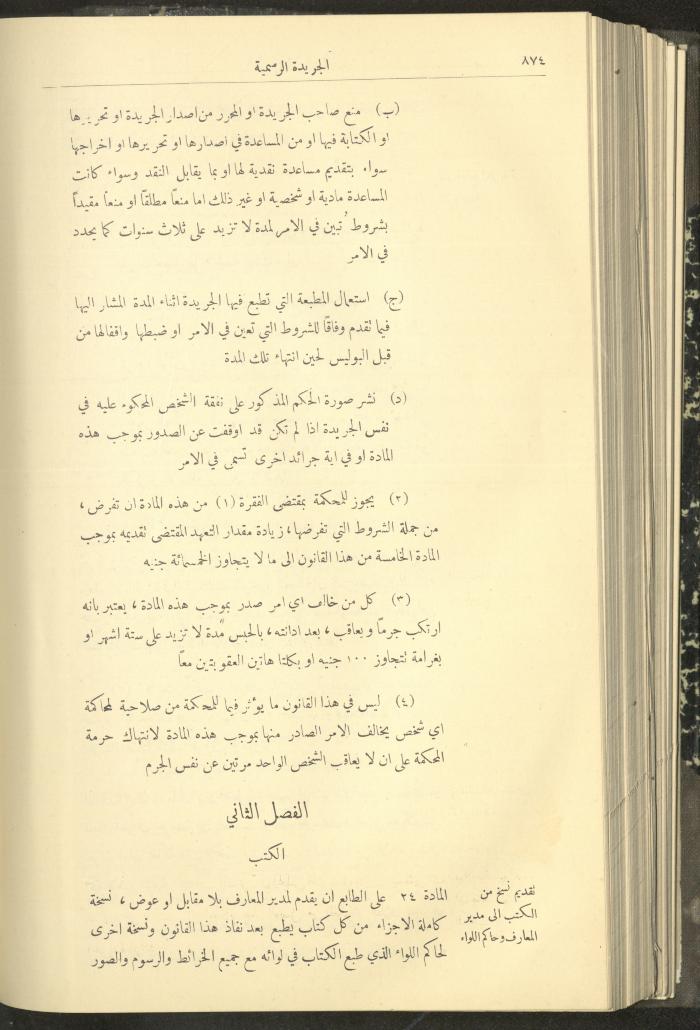 ٨٧٤
الجريدة الرسمية
(ب) منع صاحب الجريدة او المحرر من اصدار الجريدة او تحريرها
او الكتابة فيها او من المساعدة في اصدارها او تحريرها او اخراجها
سواء بتقديم مساعدة نقدية لها او بما يقابل النقد وسواء كانت
المساعدة مادية او شخصية او غير ذلك اما منعاً مطلقاً او منعاً مقيداً
بشروط تُبين في الامر لمدة لا تزيد على ثلاث سنوات كما يحدد
في الامر
(ج) استعمال المطبعة التي تطبع فيها الجريدة اثناء المدة المشار اليها
فيما تقدم وفاقاً للشروط التي تعين في الامر او ضبطها واقفالها من
قبل البوليس لحين انتهاء تلك المدة
(د) نشر صورة الحكم المذكور على نفقة الشخص المحكوم عليه في
نفس الجريدة اذا لم تكن قد اوقفت عن الصدور بموجب هذه
المادة او في اية جرائد اخرى تسمى في الامر
(٢) يجوز للمحكمة بمقتضى الفقرة (١) من هذه المادة ان تفرض ،
من جملة الشروط التي تفرضها ، زيادة مقدار التعهد المقتضى تقديمه بموجب
المادة الخامسة من هذا القانون الى ما لا يتجاوز الخمسمائة جنيه
(٣) كل من خالف اي امر صدر بموجب هذه المادة ، يعتبر بانه
ارتكب جرماً ويعاقب ، بعد ادانته ، بالحبس مدة لا تزيد على ستة اشهر او
بغرامة لتجاوز ١٠٠ جنيه او بكلتا هاتين العقوبتين معاً
(٤) ليس في هذا القانون ما يؤثر فيما للمحكمة من صلاحية لمحاكمة
اي شخص يخالف الامر الصادر منها بموجب هذه المادة لانتهاك حرمة
المحكمة على ان لا يعاقب الشخص الواحد مرتين عن نفس الجرم
الفصل الثاني
الكتب
تقديم نسخ من
الكتب الى مدير
المعارف وحاكم اللواء
المادة ٢٤ على الطابع ان يقدم لمدير المعارف بلا مقابل او عوض ، نسخة
كاملة الاجزاء من كل كتاب يطبع بعد نفاذ هذا القانون ونسخة اخرى
لحاكم اللواء الذي طبع الكتاب في لوائه مع جميع الخرائط والرسوم والصور